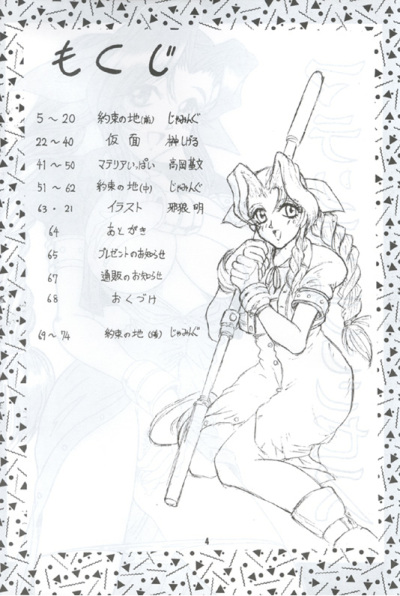 もくじ
5〜20 約束の地(前) じゃみんぐ
22〜40 仮面 榊しげる
41〜50 マテリアいっぱい 高岡基文
51〜62 約束の地(中) じゃみんぐ
63・21 イラスト 邪狼 明
64 あとがき
65 プレゼントのお知らせ
67 通販のお知らせ
68 おくづけ
69〜74 約束の地(後) じゃみんぐ
4